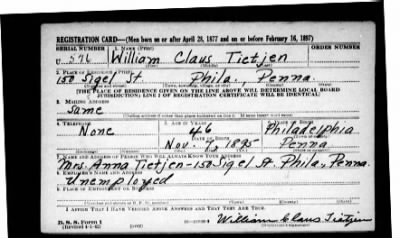 REGISTRATION CARD—(Men born on or after April 28, 1877 and on or before February 16, 1897)
SERIAL NUMBER 1. NAME (Print) ORDER NUMBER
U 576 William Claus Tietjen
2. PLACE OF RESIDENCE (Print)
150 Sigel St. Phila., Penna.
[THE PLACE OF RESIDENCE GIVEN ON THE LINE ABOVE WILL DETERMINE LOCAL BOARD
JURISDICTION; LINE 2 OF REGISTRATION CERTIFICATE WILL BE IDENTICAL]
3. MAILING ADDRESS
Same
4. TELEPHONE 5. AGE IN YEARS 6. PLACE OF BIRTH
None 46 Philadelphia
DATE OF BIRTH
Nov. 7, 1895 Penna
7. NAME AND ADDRESS OF PERSON WHO WILL ALWAYS KNOW YOUR ADDRESS
Mrs. Anna Tietjen-150 Sigel St. Phila, Penna.
8. EMPLOYER'S NAME AND ADDRESS
Unemployed
9. PLACE OF EMPLOYMENT OR BUSINESS
I AFFIRM THAT I HAVE VERIFIED ABOVE ANSWERS AND THAT THEY ARE TRUE.
D. S. S. Form 1
(Revised 4-1-42)
William Claus Tietjen